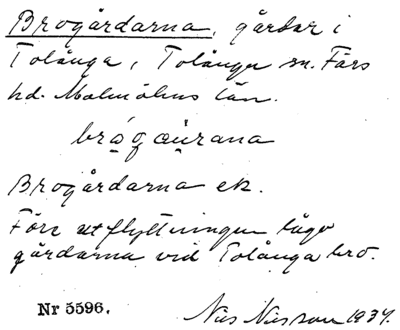 Brogårdarna, gårdar i
Tolånga, Tolånga sn. Färs
hd. Malmöhus län.
brǫ́gœ̨u̇rana
Brogårdarna ek.
Förr utflyttningen lågo
gårdarna vid Tolånga bro.
Nr 5596. Nils Nilsson 1934.